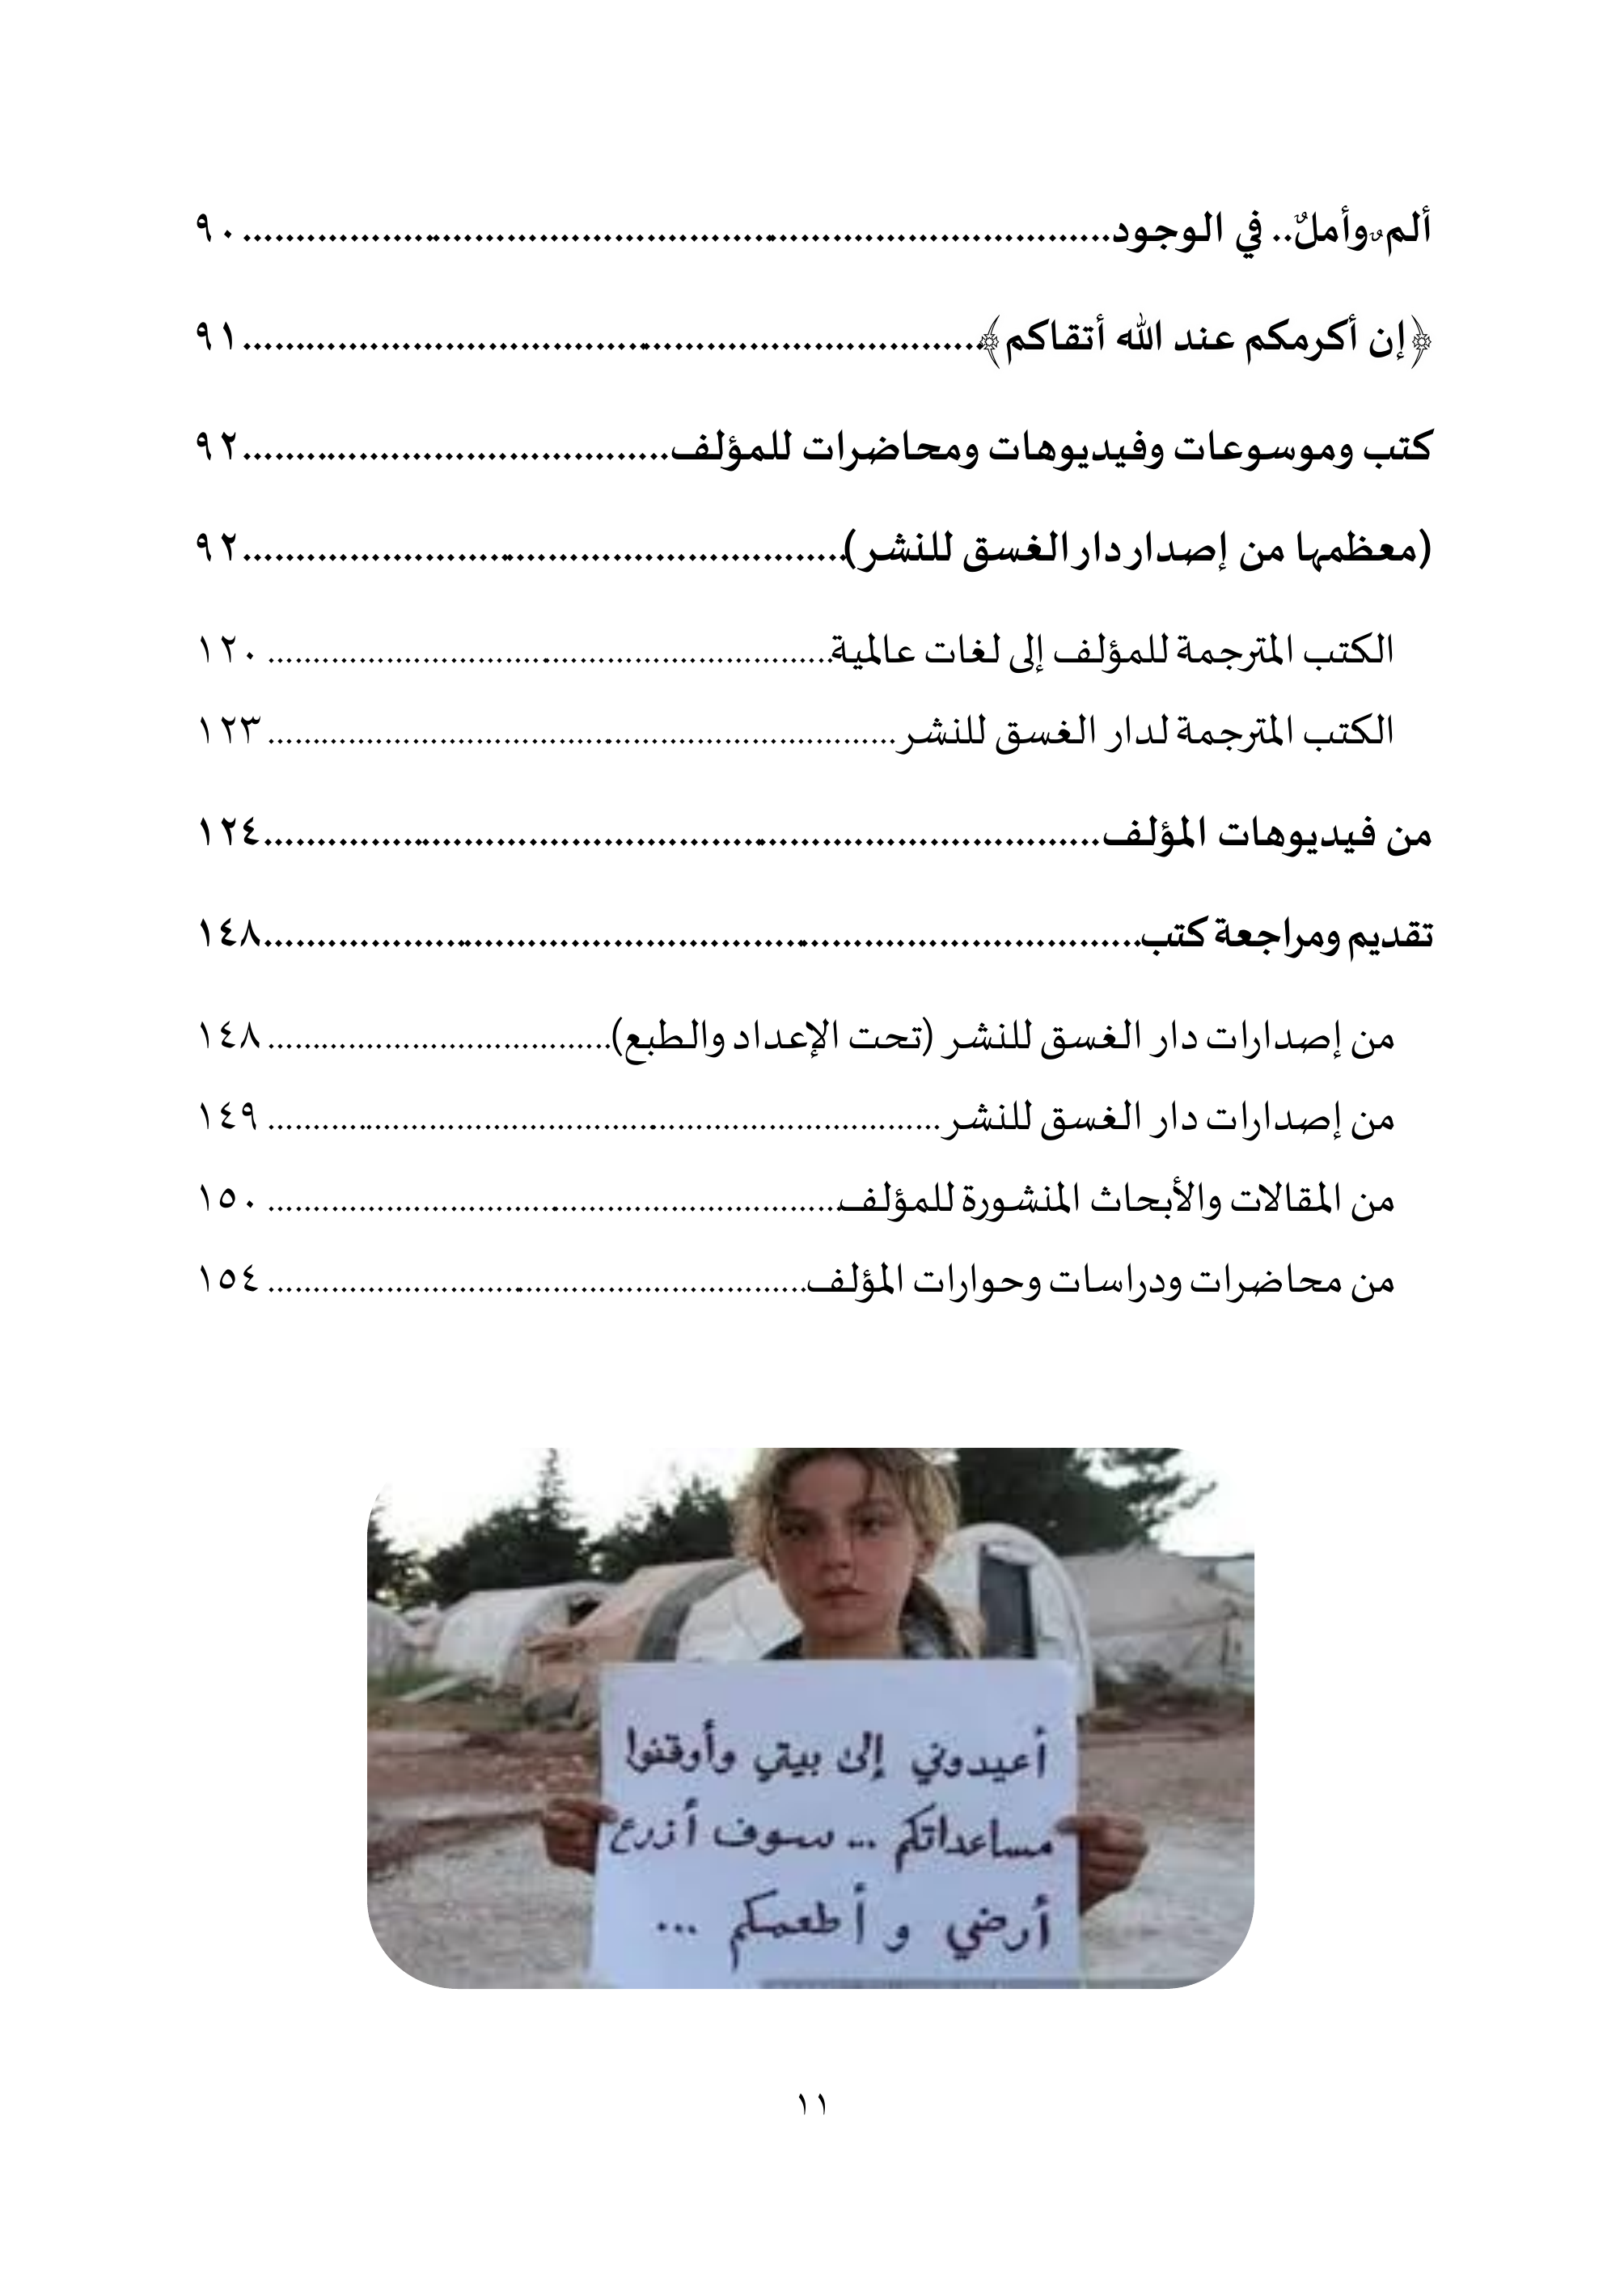 ألمٌ وأملٌ.. في الوجود................................................٩٠
﴿إن أكرمكم عند الله أتقاكم﴾................................................٩١
كتب وموسوعات وفيديوهات ومحاضرات للمؤلف................................................٩٢
(معظمها من إصدار دار الغسق للنشر)................................................٩٢
الكتب المترجمة للمؤلف إلى لغات عالمية................................................ ١٢٠
الكتب المترجمة لدار الغسق للنشر................................................ ١٢٣
من فيديوهات المؤلف................................................١٢٤
تقديم ومراجعة كتب................................................١٤٨
من إصدارات دار الغسق للنشر (تحت الإعداد والطبع)................................................ ١٤٨
من إصدارات دار الغسق للنشر................................................ ١٤٩
من المقالات والأبحاث المنشورة للمؤلف................................................ ١٥٠
من محاضرات ودراسات وحوارات المؤلف................................................ ١٥٤
أعيدوني إلى بيتي وأوقفوا
مساعداتكم ... سوف أزرع
أرضي و أطعمكم ...
١١